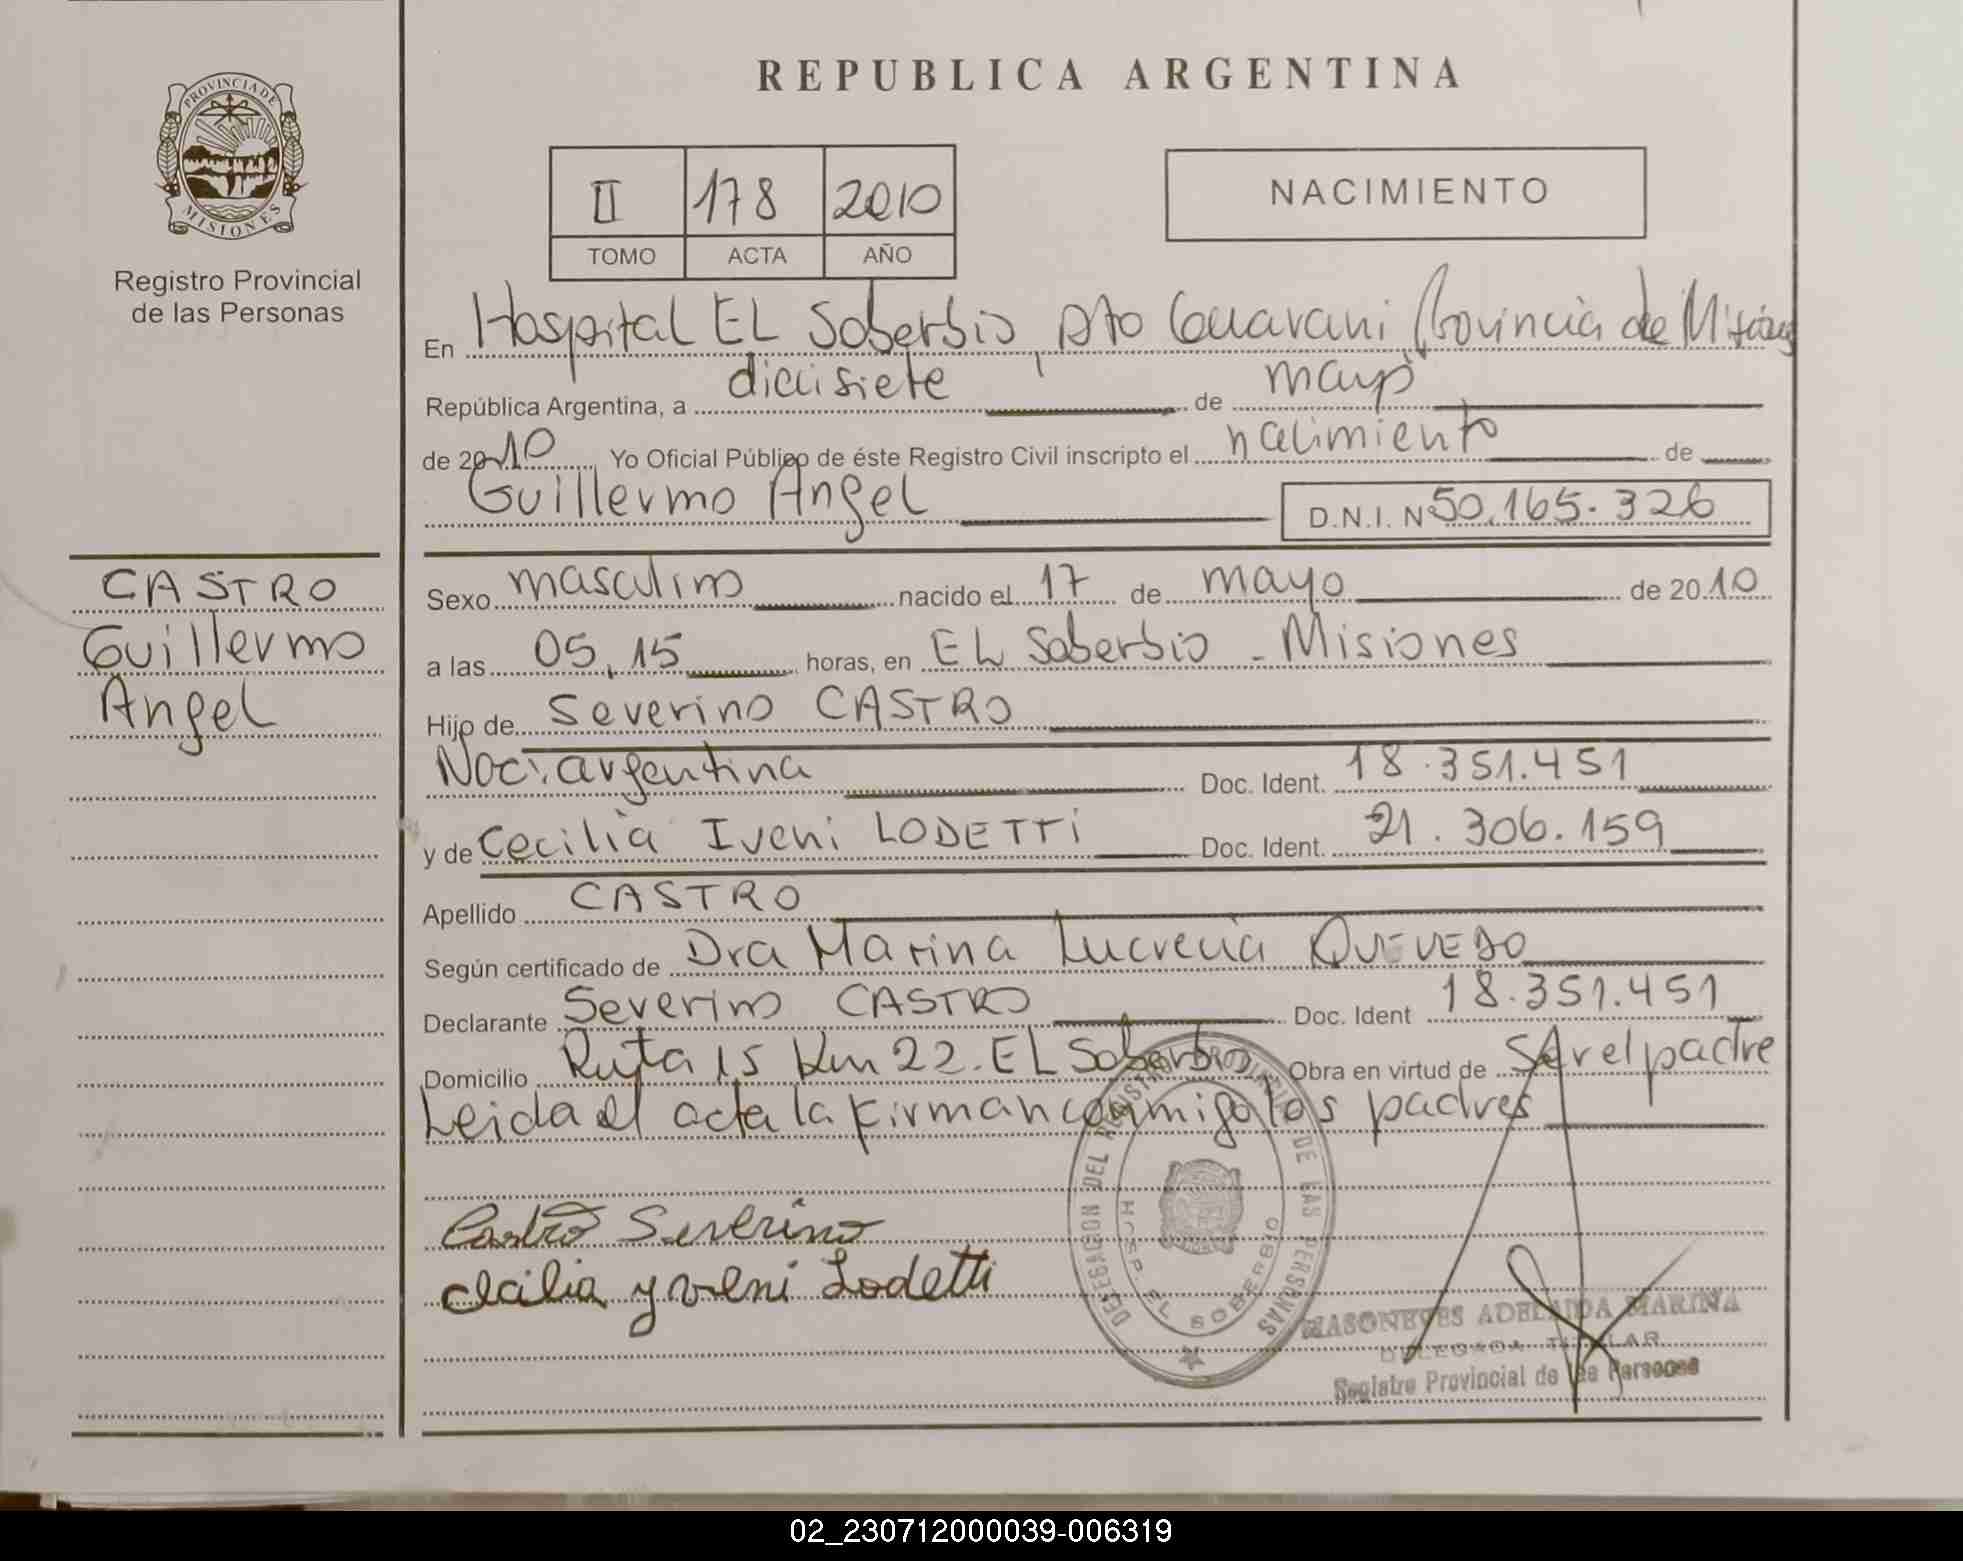 REPUBLICA ARGENTINA
PROVINCIA DE
MISIONES
Registro Provincial
de las Personas
II 178 2010
TOMO ACTA AÑO
NACIMIENTO
En Hospital EL Soberbio, Dto Guarani Provincia de Misiones
República Argentina, a diecisiete de mayo
de 2010 Yo Oficial Público de éste Registro Civil inscripto el nacimiento de
Guillermo Angel D.N.I. Nº 50.165.326
CASTRO
Guillermo
Angel
Sexo masculino nacido el 17 de mayo de 2010
a las 05,15 horas, en EL Soberbio - Misiones
Hijo de Severino CASTRO
Nac. argentina Doc. Ident. 18.351.451
y de Cecilia Iveni LODETTi Doc. Ident. 21.306.159
Apellido CASTRO
Según certificado de Dra Marina Lucrecia QUEVEDO
Declarante Severino CASTRO Doc. Ident 18.351.451
Domicilio Ruta 15 Km 22. EL Soberbio Obra en virtud de Ser el padre
Leida el acta la firman conmigo los padres
Castro Severino
cecilia yveni Lodetti
DELEGACION DEL REGISTRO PROVINCIAL DE LAS PERSONAS
HOSP. EL SOBERBIO
ADELAIDA MARINA
DELEGADA TITULAR
Registro Provincial de las Personas
02_230712000039-006319